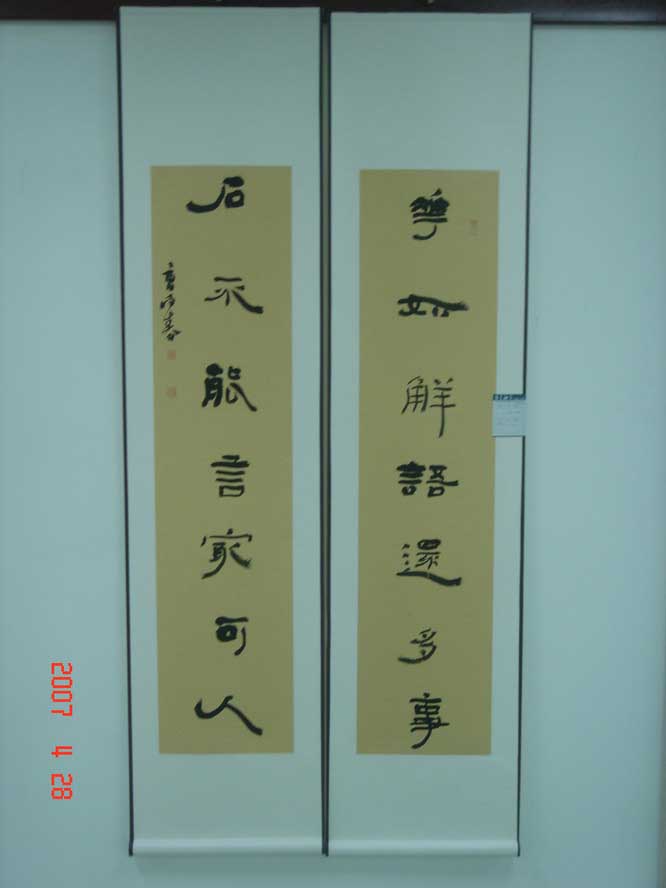 華如解語還多事
石不能言最可人
2007 4 28